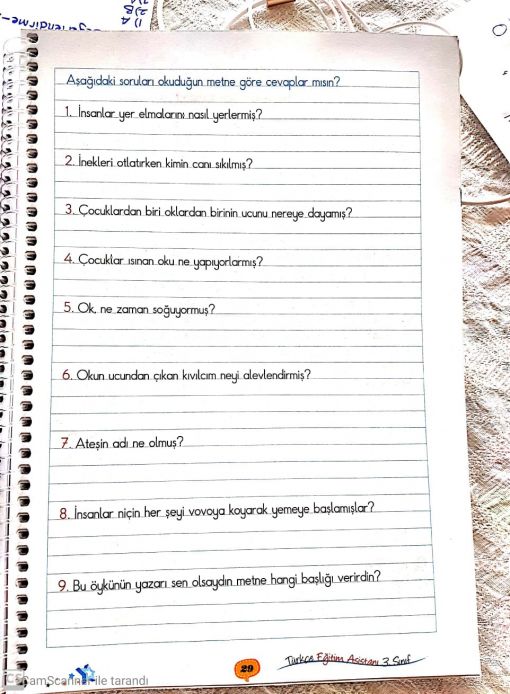 1) A
2) B
Aşağıdaki soruları okuduğun metne göre cevaplar mısın?
1. İnsanlar yer elmalarını nasıl yerlermiş?
2. İnekleri otlatırken kimin canı sıkılmış?
3. Çocuklardan biri oklardan birinin ucunu nereye dayamış?
4. Çocuklar ısınan oku ne yapıyorlarmış?
5. Ok, ne zaman soğuyormuş?
6. Okun ucundan çıkan kıvılcım neyi alevlendirmiş?
7. Ateşin adı ne olmuş?
8. İnsanlar niçin her şeyi vovoya koyarak yemeye başlamışlar?
9. Bu öykünün yazarı sen olsaydın metne hangi başlığı verirdin?
29
Türkçe Eğitim Asistanı 3. Sınıf
CS CamScanner ile tarandı